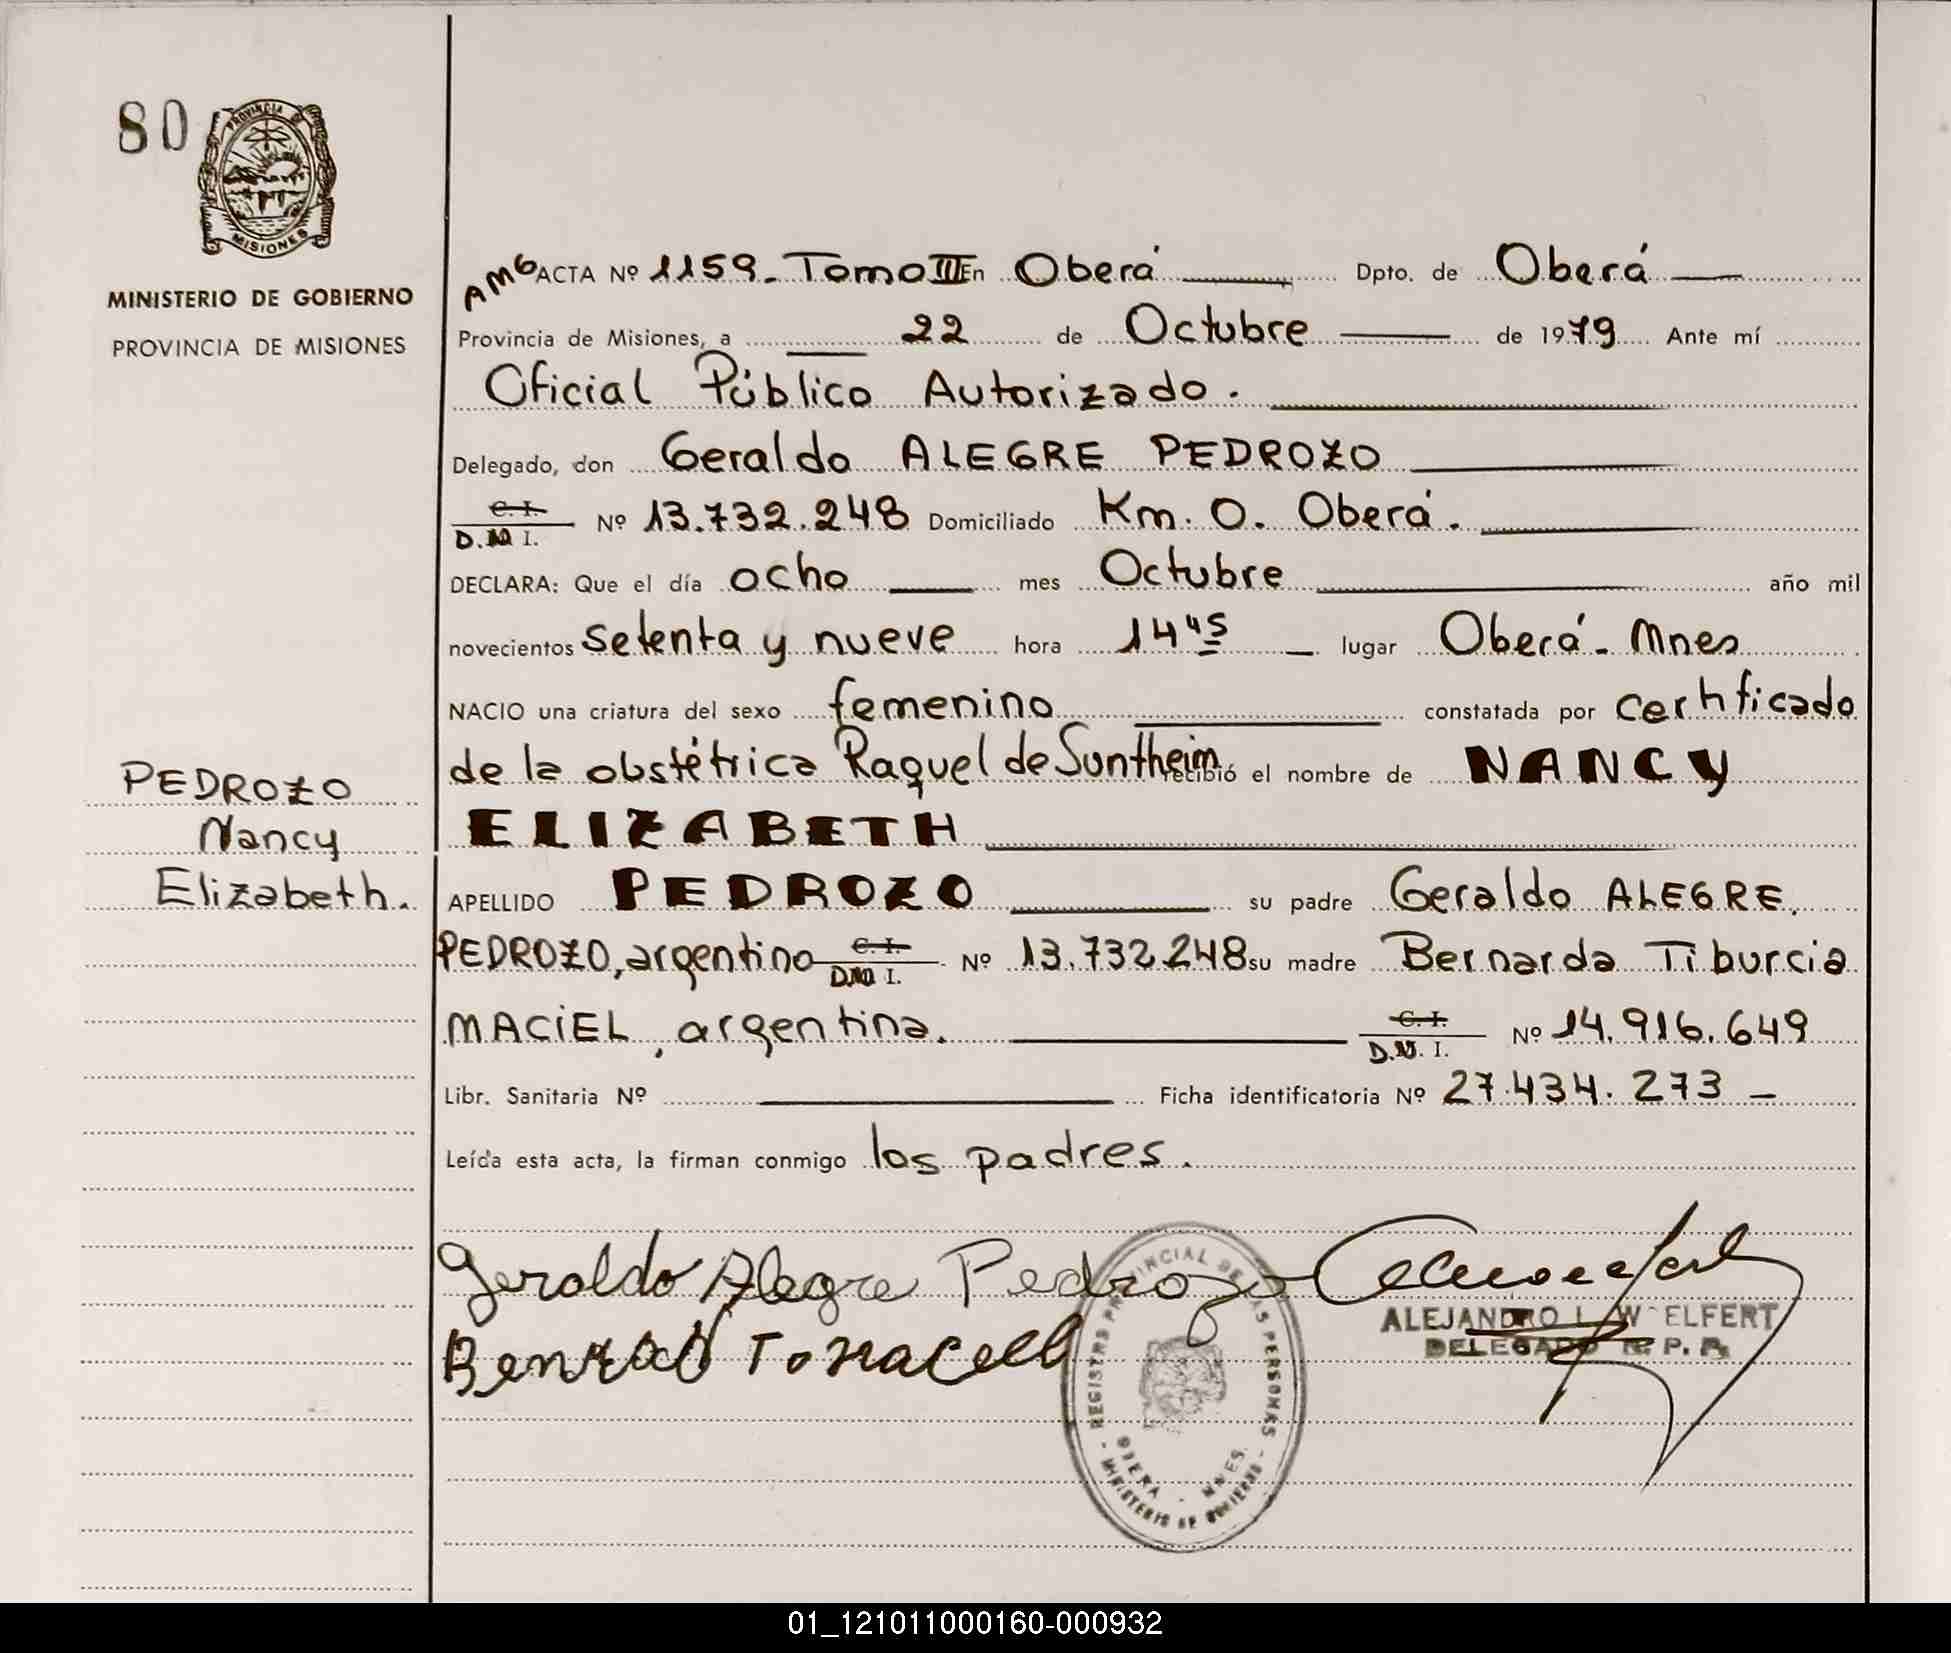 80
PROVINCIA DE
MISIONES
MINISTERIO DE GOBIERNO
PROVINCIA DE MISIONES
AMG ACTA Nº 1159.- Tomo III En Oberá Dpto. de Oberá
Provincia de Misiones, a 22 de Octubre de 1979 Ante mí
Oficial Público Autorizado.
Delegado, don Geraldo ALEGRE PEDROZO
C. I.
D.N I. Nº 13.732.248 Domiciliado Km. 0. Oberá.
DECLARA: Que el día ocho mes Octubre año mil
novecientos setenta y nueve hora 14 45 lugar Oberá - Mnes
NACIO una criatura del sexo femenino constatada por certificado
de la obstétrica Raquel de Suntheim recibió el nombre de NANCY
ELIZABETH
PEDROZO
Nancy
Elizabeth.
APELLIDO PEDROZO su padre Geraldo ALEGRE
PEDROZO, argentino C. I. D.N I. Nº 13.732.248 su madre Bernarda Tiburcia
MACIEL, argentina. C. I. D.N. I. Nº 14.916.649
Libr. Sanitaria Nº Ficha identificatoria Nº 27.434.273 -
Leída esta acta, la firman conmigo los padres.
Geraldo Alegre Pedrozo
ALEJANDRO L. WELFERT
DELEGADO R. P. P.
REGISTRO PROVINCIAL DE LAS PERSONAS
OBERA - MNES.
- MINISTERIO DE GOBIERNO -
01_121011000160-000932